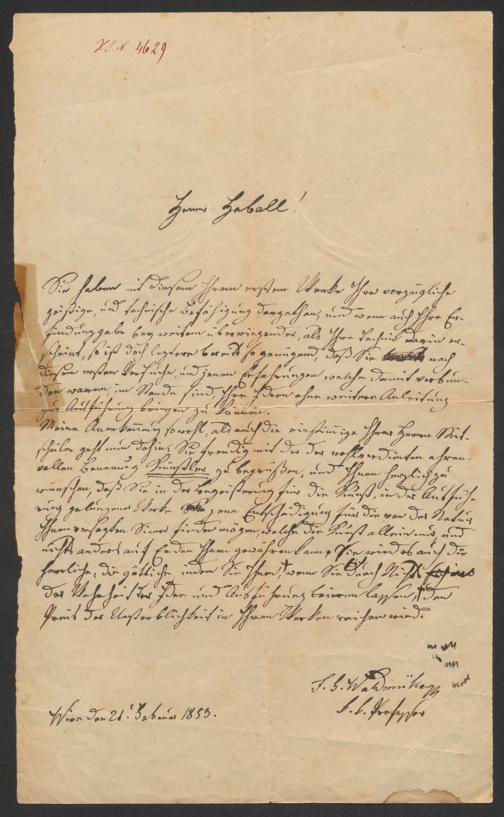 4629
Herrn Haball!
Sie haben mit diesem Ihrem ersten Werke Ihre vorzügliche
geistige, und technische Befähigung dargethan, und wenn auch Ihre Er-
findungsgabe bey weitem überwiegender, als Ihre Technik darin er-
scheint, so ist doch letztere bereits so genügend, daß Sie nach
diesem ersten Versuche, und jenen Erfahrungen, welche damit verbun-
den waren im Stande sind, Ihre Ideen ohne weitere Anleitung
zur Ausführung bringen zu können.
Meine Anerkennung sowohl, als auch die einstimmige Ihrer Herren Mit-
schüler geht nun dahin, Sie freudig mit der wohlverdienten ehren-
vollen Benennung Künstler zu begrüßen, und Ihnen herzlich zu
wünschen, daß Sie in der Begeisterung für die Kunst, in der Ausfüh-
rung gelungener Werke jene Entschädigung für die von der Natur
Ihnen versagten Sinne finden mögen, welche die Kunst allein nur und
nichts anders auf Erden Ihnen gewähren kann. Sie wird es auch die
herrliche, die göttliche, indem Sie Ihnen, wenn Sie
der Wahrheit der Idee und Ausführung lassen, den
Preis der Unsterblichkeit in Ihren Werken reichen wird.
F. G. Waldmüller
k. k. Professor
Wien den 21. Februar 1853.